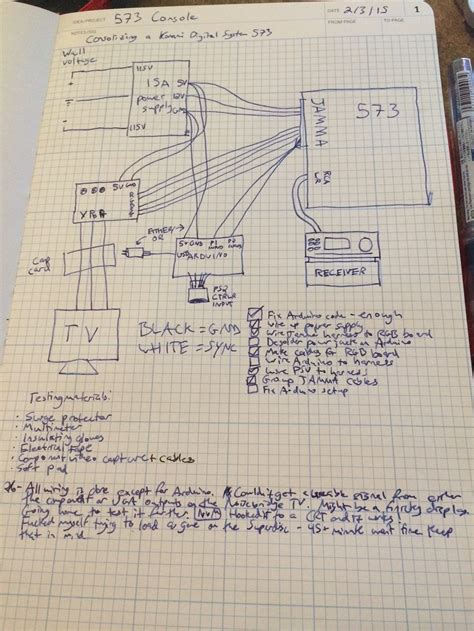 IDEA/PROJECT 573 Console
DATE 2/3/15
1
FROM PAGE
TO PAGE
Consolizing a Konami Digital System 573
Wall
voltage
115V
15A
power
supply
115V
5V
12V
GND
JAMMA
573
RCA
LR
RECEIVER
5V GND
Y
Cap
card
TV
EITHER/
OR
5V GND
P1
P2
USB
ARDUINO
PS2
CTRLR
INPUT
BLACK = GND
WHITE = SYNC
Fix Arduino code - enough
Wire up power supply
Wire Jamma harness to RGB board
Desolder power jack on Arduino
Make cables for RGB board
Wire Arduino to harness
Wire PSU to harness
Group JAMMA cables
Fix Arduino setup
Testing materials:
· Surge protector
· Multimeter
· Insulating gloves
· Electrical tape
· Component video capture + cables
· Soft pad
All wiring is done except for Arduino. Couldn't get a useable signal from either
the component or VGA outputs on the TV. Might be a finicky display.
Going home to test it further. Hooked it to a CRT and it works.
Fucked myself trying to load a game on the - 45+ minute wait time. Keep
that in mind